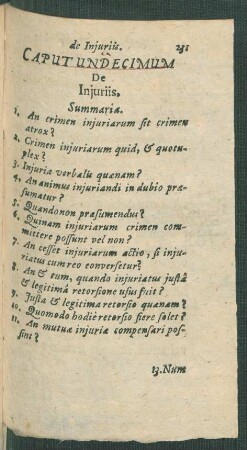 de Injuriis. 231
CAPUT UNDECIMUM
De
Injuriis.
Summaria.
1. An crimen injuriarum sit crimen
atrox?
2. Crimen injuriarum quid, & quotu-
plex?
3. Injuria verbalis quænam?
4. An animus injuriandi in dubio præ-
sumatur?
5. Quando non præsumendus?
6. Quinam injuriarum crimen com-
mittere possunt vel non?
7. An cesset injuriarum actio, si inju-
riatus cum reo conversetur?
8. An & eum, quando injuriatus justâ
& legitimâ retorsione usus fuit?
9. Justa & legitima retorsio quænam?
10. Quomodo hodiè retorsio fiere solet?
11. An mutuæ injuriæ compensari pos-
sint?
13. Num